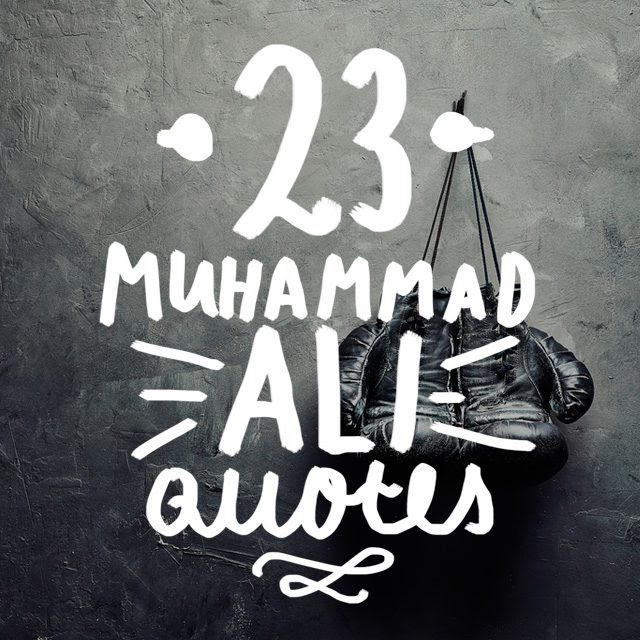 23
MUHAMMAD
ALI
quotes